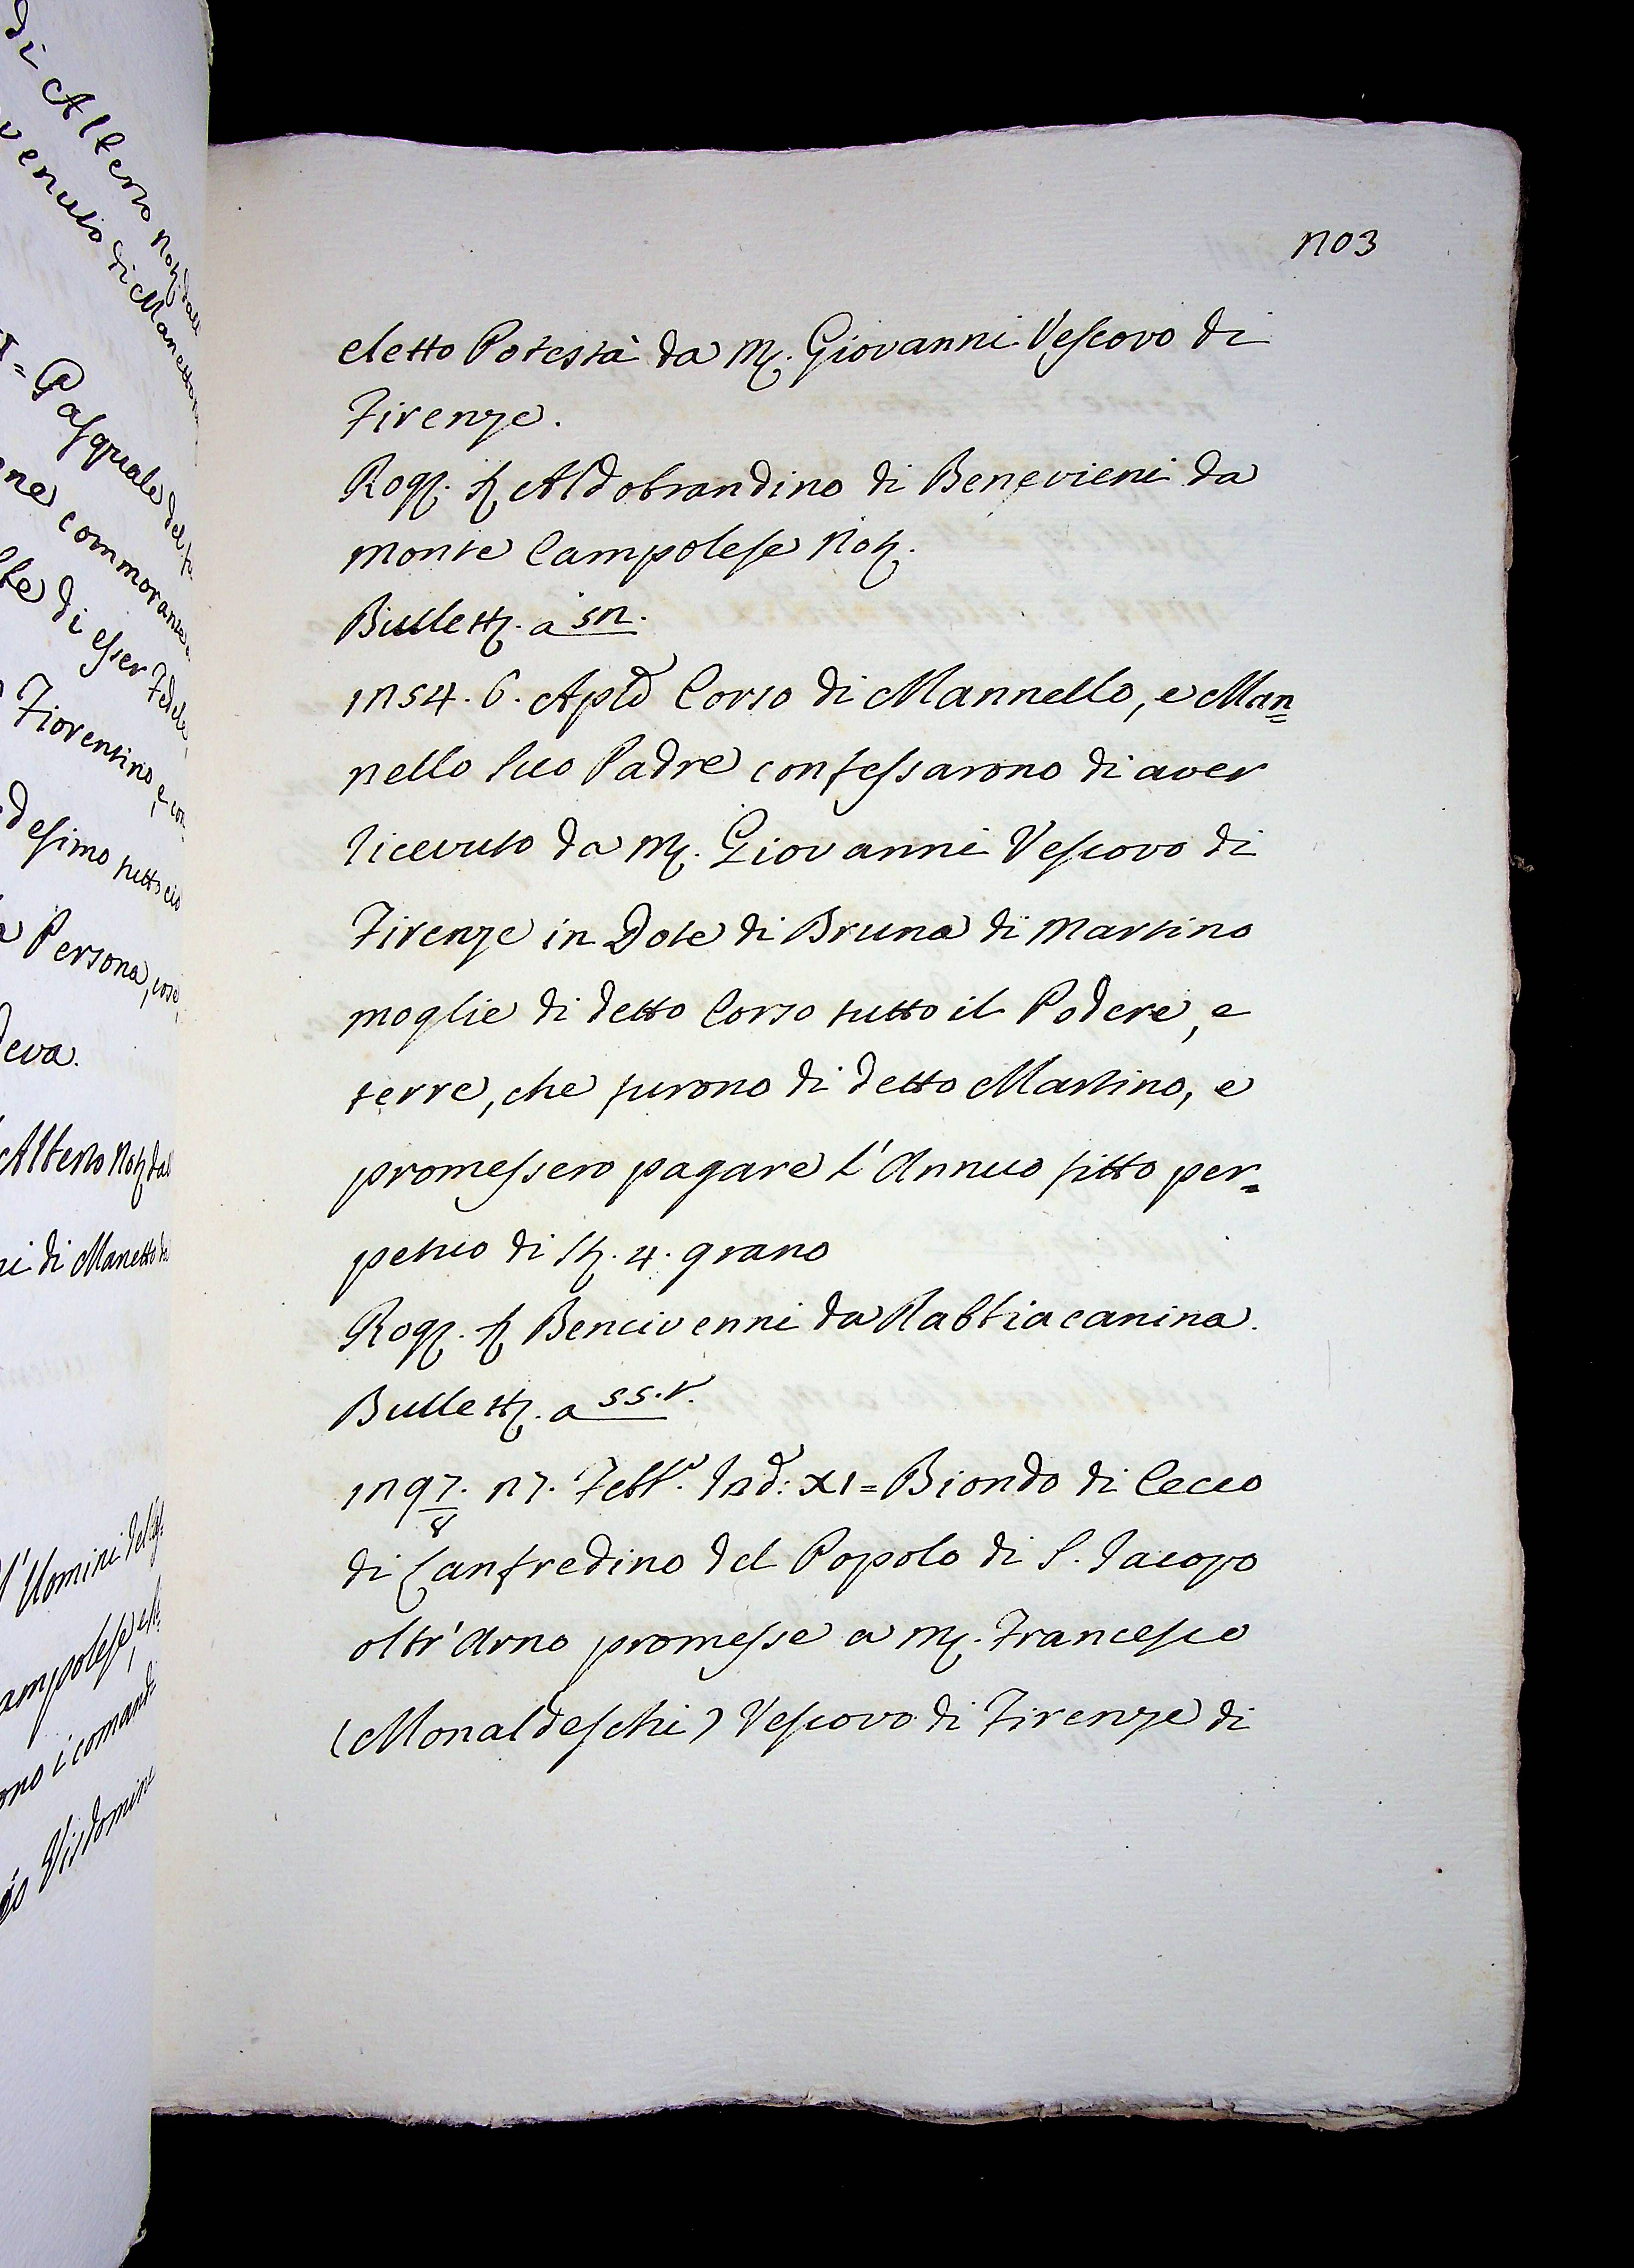 di Alberto Not. dall
venuto di Manetto
Pasquale del
commorante
di esser Fedele
Fiorentino, e con
desimo tutto ciò
Persona, cose,
deva.
Alberto Not. dal
di Manetto da
Uomini del
ampolese, e
ono i comand
Visdomini
203
eletto Potestà da M. Giovanni Vescovo di
Firenze.
Rog. S. Aldobrandino di Benevieni da
Monte Campolese Not.
Bullett. a 52.
1254. 6. Aple Corso di Mannello, e Man=
nello suo Padre confessarono di aver
ricevuto da M. Giovanni Vescovo di
Firenze in Dote di Bruna di Martino
moglie di detto Corso tutto il Podere, e
terre, che furono di detto Martino, e
promessero pagare l'Annuo fitto per=
petuo di St. 4. grano
Rog. S. Bencivenni da Rabbiacanina.
Bullett. a 55.t.
1297/8. 27. Febb.o Ind: XI = Biondo di Cecco
di Lanfredino del Popolo di S. Iacopo
oltr'Arno promesse a M. Francesco
(Monaldeschi) Vescovo di Firenze di